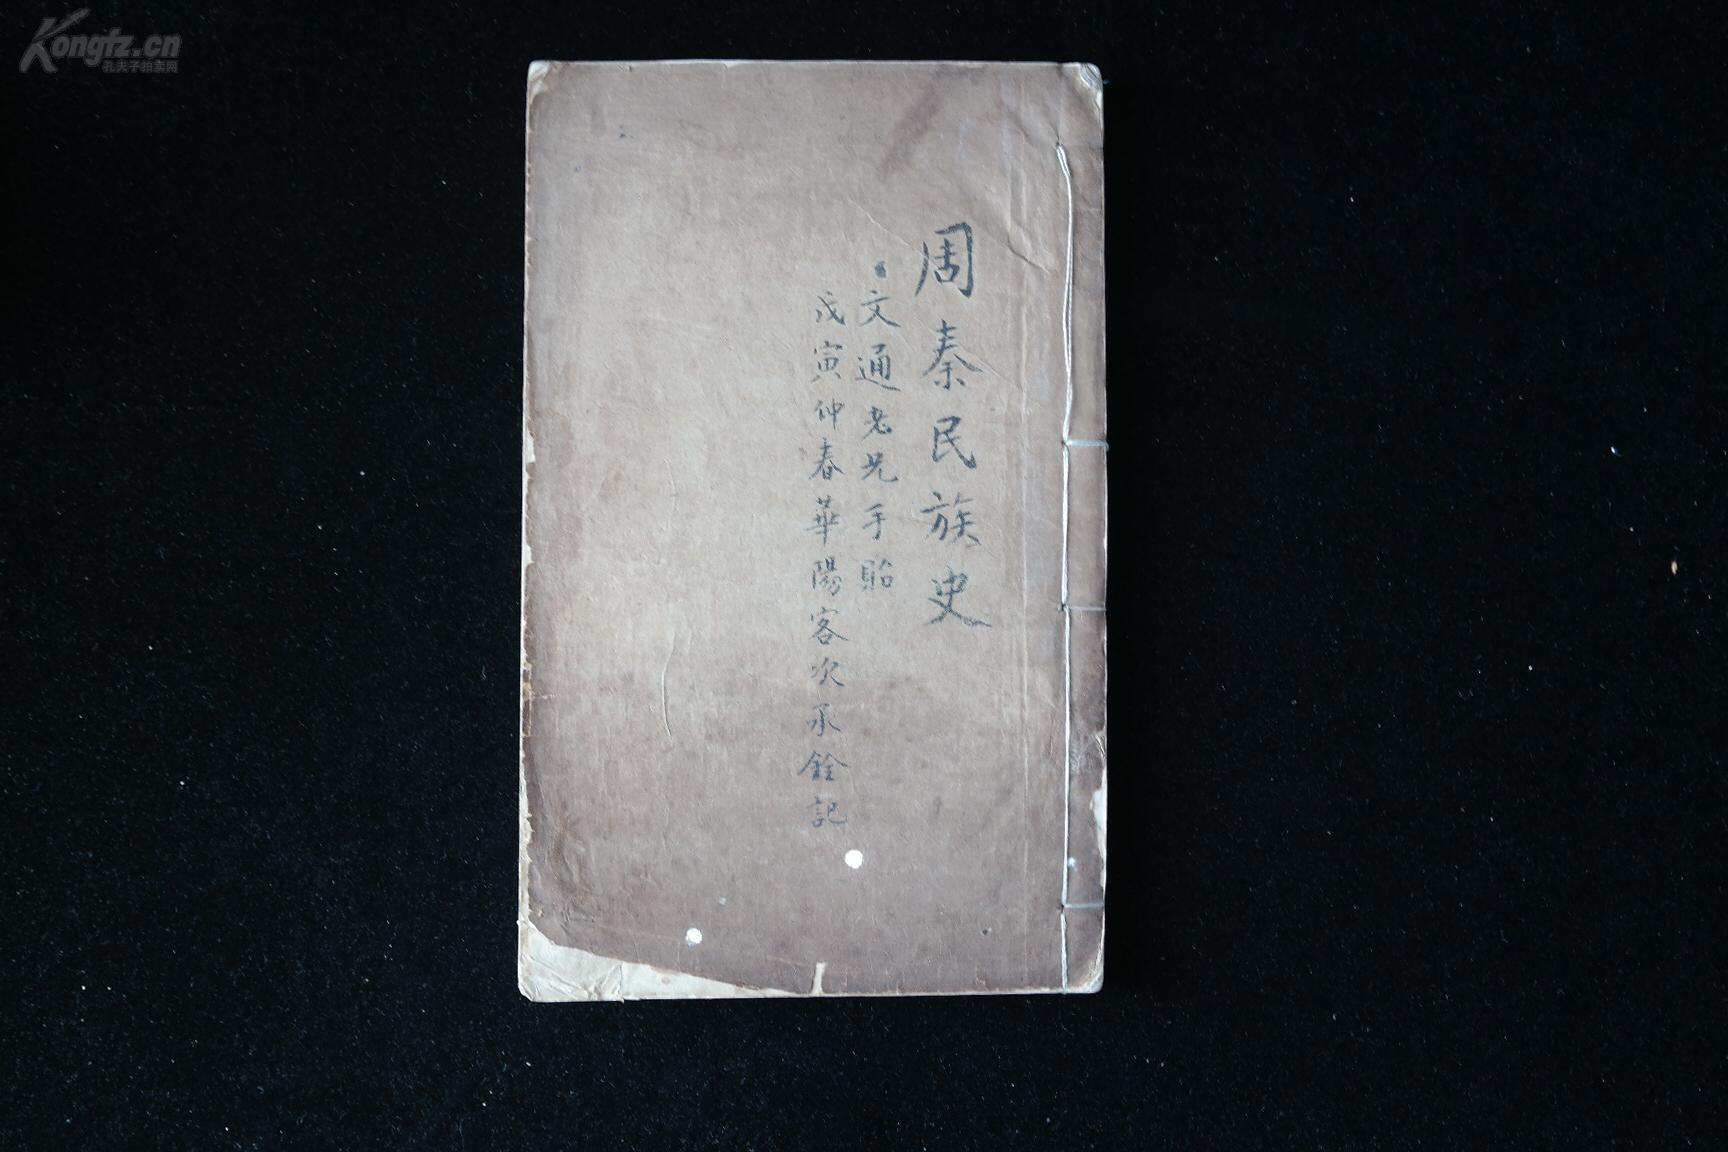 Kongfz.cn
孔夫子拍卖网
周秦民族史
文通老兄手貽
戊寅仲春華陽客次承銓記